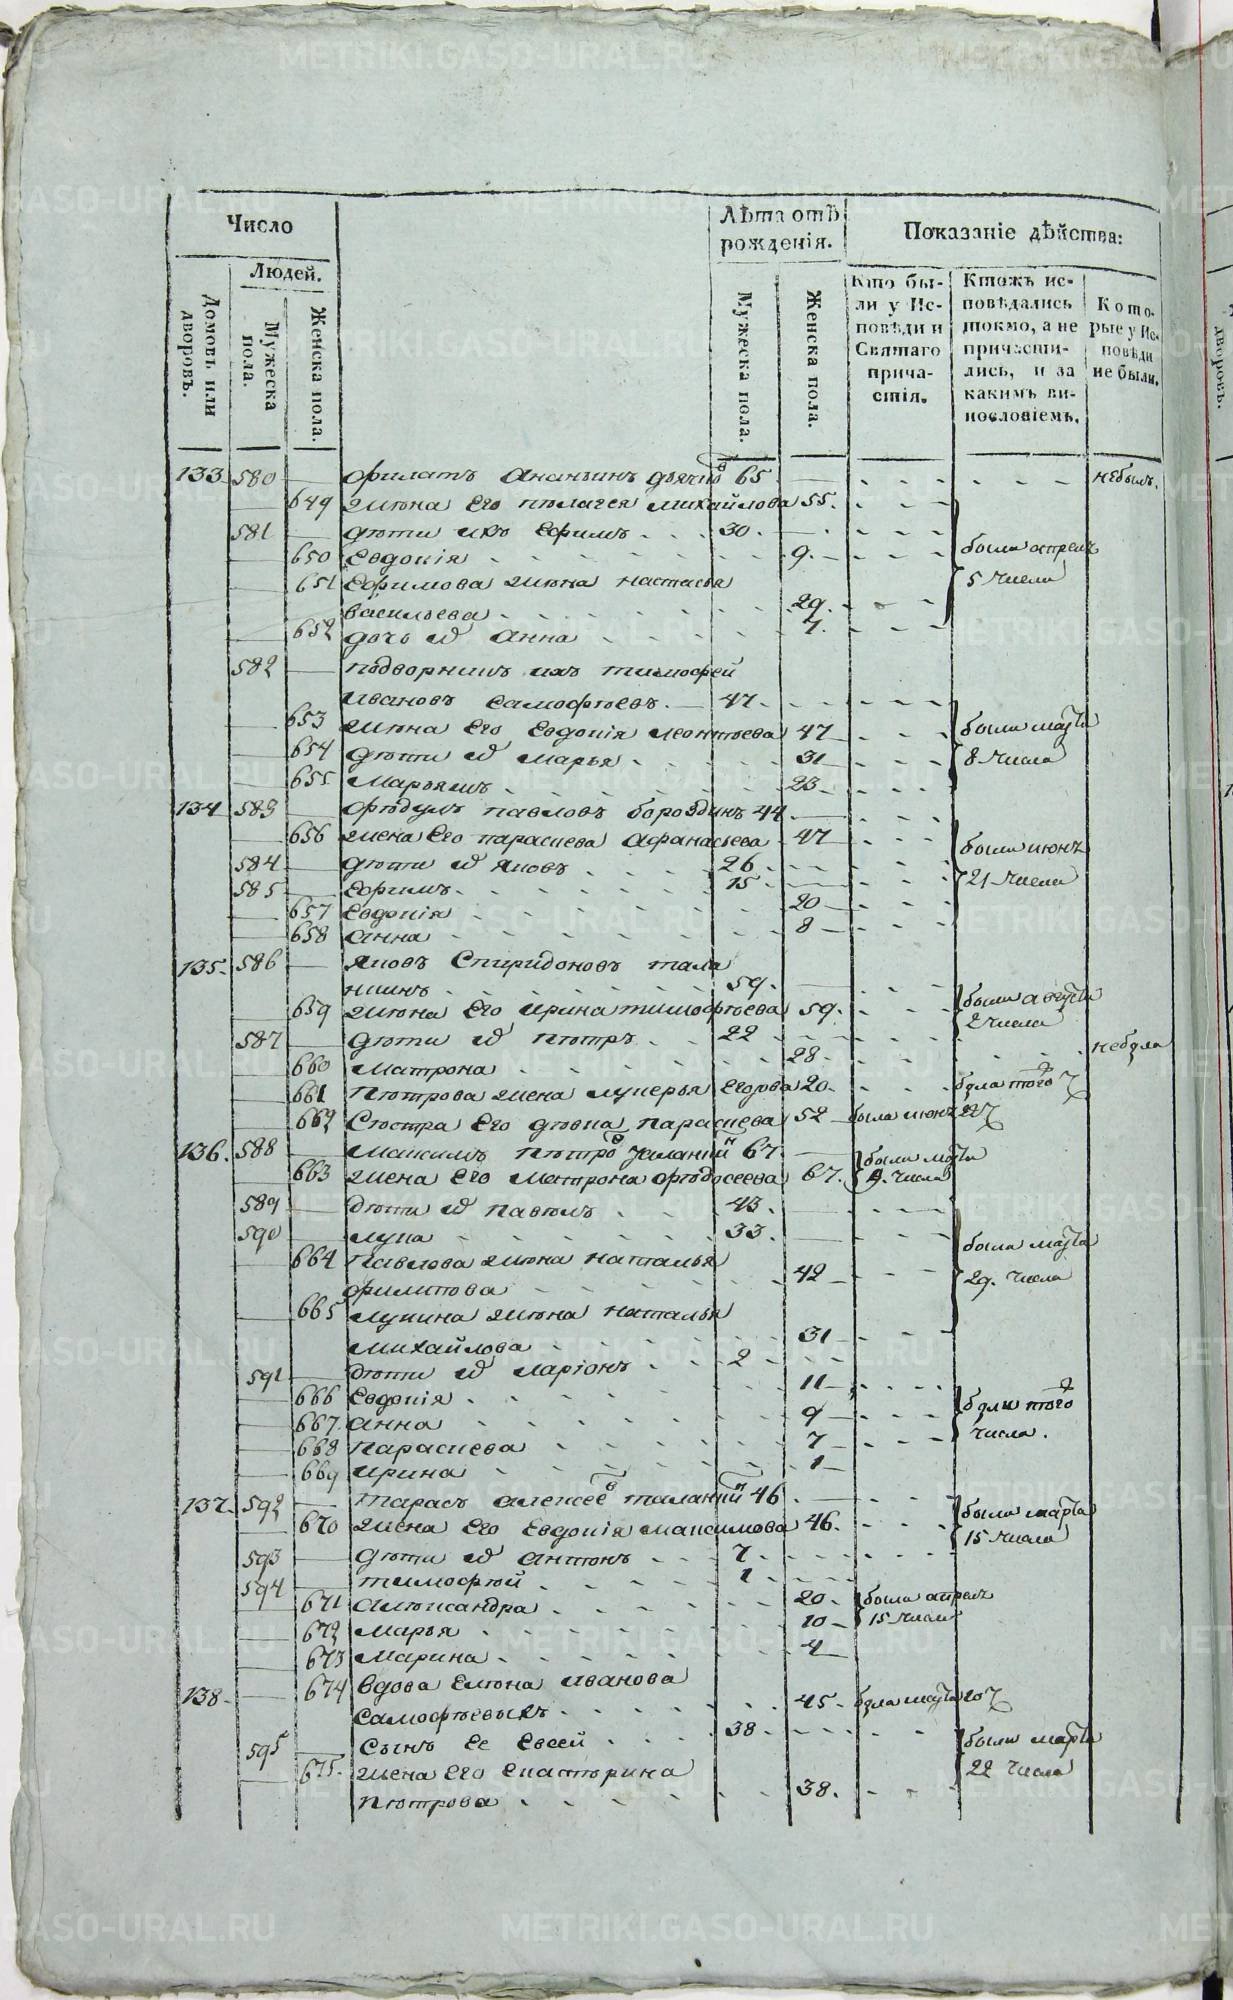 Число
Людей.
Домовъ или дворовъ.
Мужеска пола.
Женска пола.
Лѣта отъ рожденія.
Мужеска пола.
Женска пола.
Показаніе дѣйства:
Кто бы-
ли у Ис-
повѣди и
Святаго
прича-
стія.
Ктожъ ис-
повѣдались
токмо, а не
причасти-
лись, и за
какимъ ви-
нословіемъ.
Кото-
рые у Ис-
повѣди
не были.
133 580 Филатъ Ананьинъ 65 небылъ.
649 жена Его пелагея михайлова 55.
581 дѣти ихъ Ефимъ 30
650 Евдокія 9. были апреля
651 Ефимова жена настасья 5 числа
васильева 29.
652 дочь Анна
582 подворникъ ихъ тимофей
Ивановъ Самофѣевъ 47
653 жена Его Евдокія леонтьева 47 были марта
654 дѣти марья 31 8 числа
655 Марьямъ 23
134 583 Павловъ бороздинъ 44
656 жена Его параскева афанасьева 47 были июня
584 дѣти яковъ 26 21 числа
585 Ефимъ 15
657 Евдокія 20
658 анна 8
135 586 Яковъ Спиридоновъ тала
нкинъ 59.
659 жена Его Ирина тимофѣева 59. были августа
2 числа
587 дѣти петръ 22 небыла
660 Матрона 28
661 петрова жена лукерья Егорова 20 была того ч
662 Сестра Его девка параскева 52 была июня 22 ч
136. 588 Максимъ петро 67 были марта
663 жена Его Матрона федосеева 67. 9. числа
589 дѣти павелъ 43
590 лука 33 были марта
664 павлова жена наталья 29. числа
филипова 42
665 лукина жена наталья
михайлова 31
591 дѣти ларіонъ 2
666 Евдокія 11 были того
667 анна 9 числа.
668 параскева 7
669 ирина 1
137 592 тарасъ алексѣе таланки 46 были марта
670 жена Его Евдокія максимова 46. 15 числа
593 дѣти антонъ 7
594 тимофей 1
671 александра 20 были апреля
672 Марья 10 15 числа
673 марина 4
138 674 вдова Елена иванова
самофѣевыхъ 45 была марта 20 ч
595 Сынъ Ее Евсей 38 были марта
675 жена Его Екатерина 22 числа
петрова 38.
METRIKI.GASO-URAL.RU